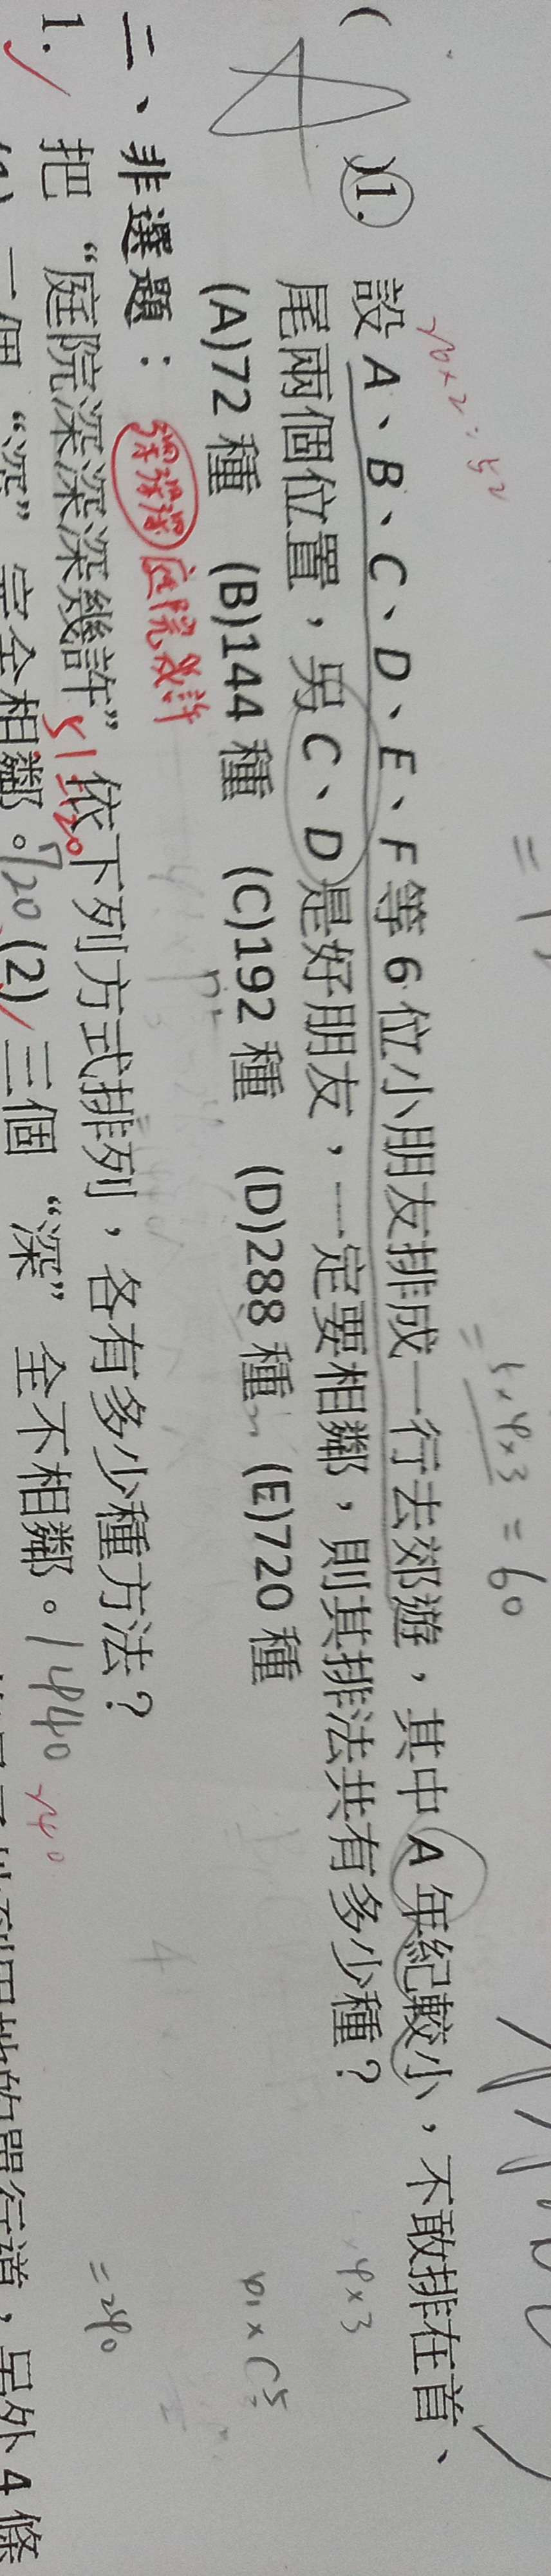 = 5×4×3 = 60
20×2=52
( )1. 設 A、B、C、D、E、F 等 6 位小朋友排成一行去郊遊，其中 A 年紀較小，不敢排在首、
尾兩個位置，另 C、D 是好朋友，一定要相鄰，則其排法共有多少種？
(A)72 種 (B)144 種 (C)192 種 (D)288 種 (E)720 種
二、非選題：
深深深 庭院幾許
1. 把 “庭院深深深幾許” 依下列方式排列，各有多少種方法？
5!=120
=240
(1) 三個 “深” 完全相鄰。720 (2) 三個 “深” 全不相鄰。1440
240